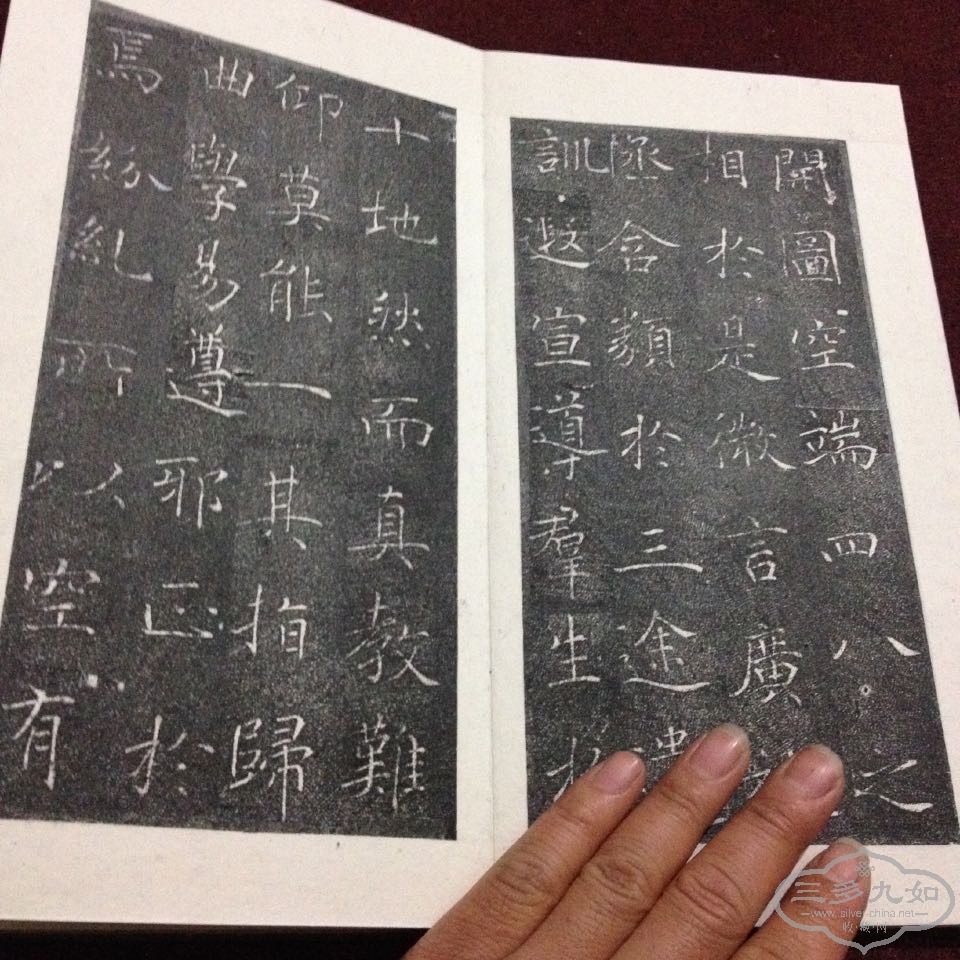 開圖空端四八之
相於是微言廣
拯含類於三途
訓遐宣導羣生於
十地然而真教難
仰莫能一其指歸
曲學易遵耶正於
焉紛糺所以空有
三多九如
www.silver-china.net
收藏网